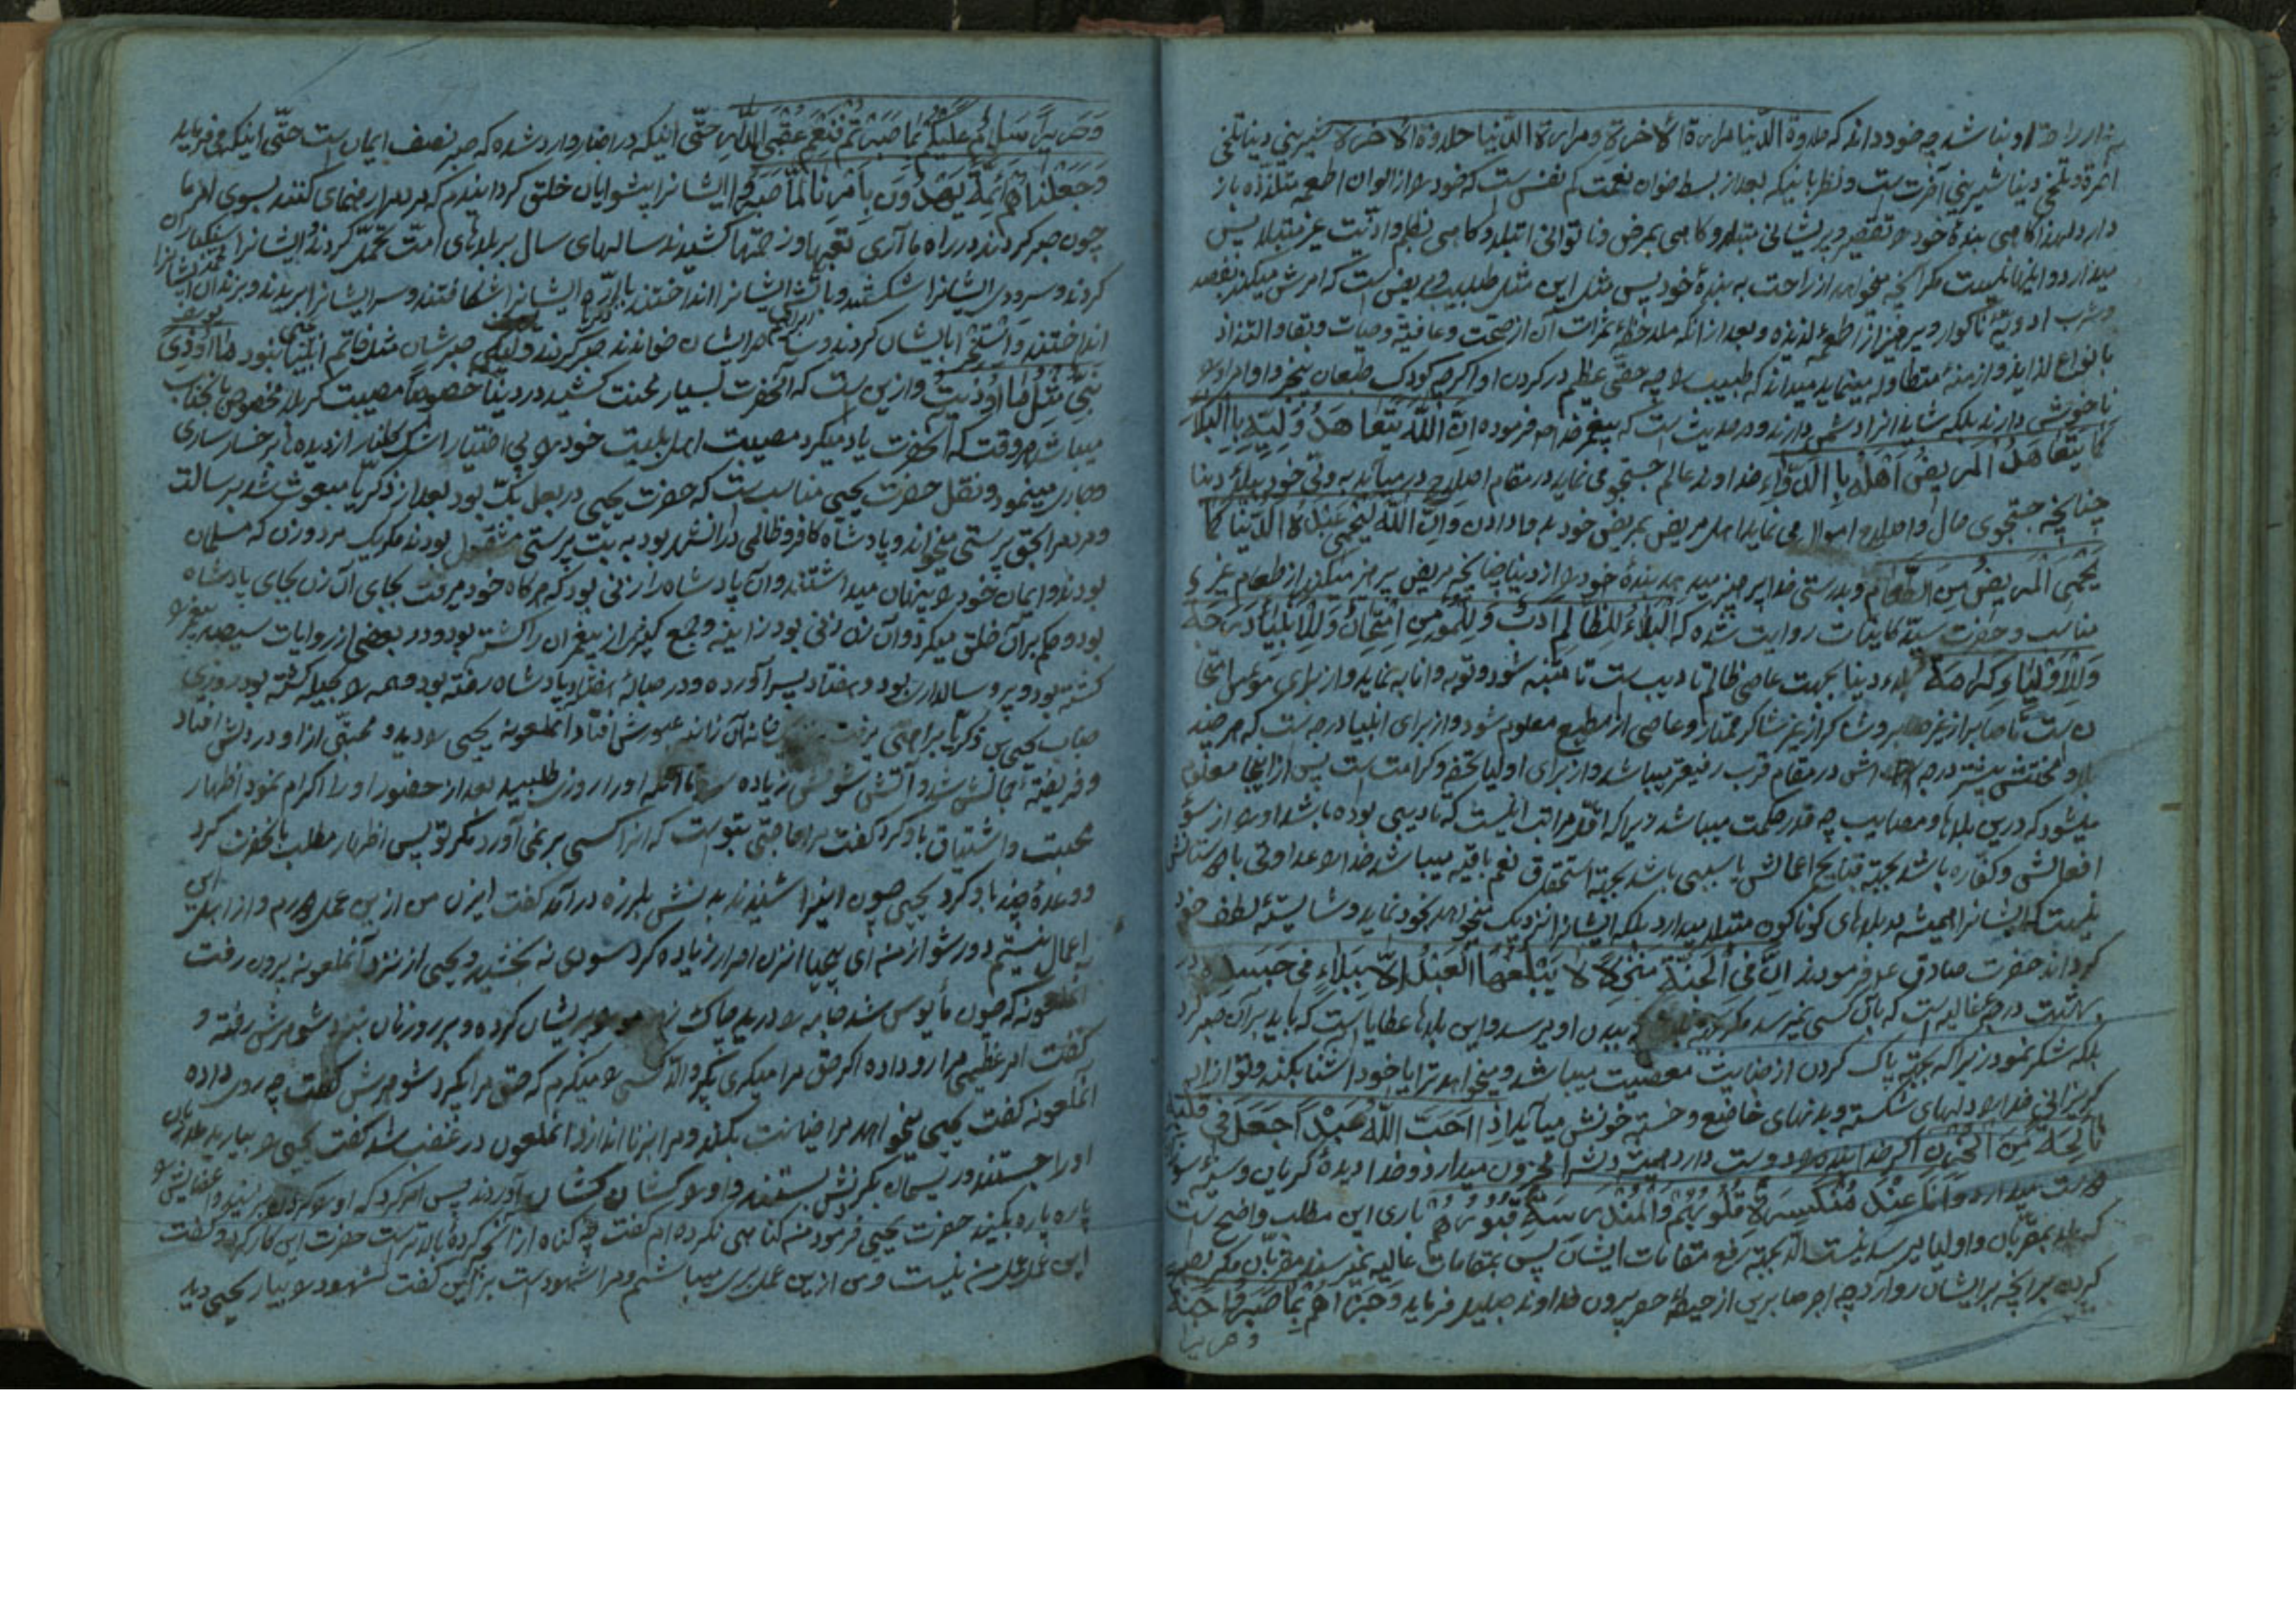 او بنا شد چه خود داند که حلاوة الدّنیا مرارة الآخرة ومرارة الدّنیا حلاوة الآخرة شیرینی دینا تلخی
آخرة وتلخی دینا شیرینی آخرت ست ونظر باینکه بعد از بسط خوان نعمت کم نفس ست که خود را از الوان اطعمه متلذذه باز
دارد لهذا کاهی بندهٔ خود را بفقر وپریشانی مبتلا وکاهی بمرض وناتوانی ابتلا وکاهی بظلم واذیّت غیر مبتلایش
میدارد واینها نیست مکر آنچه میخواهد از راحت به بندهٔ خود پس مثل این مثل طبیب ومریض ست که امرش میکند بفصد
وشرب ادویهٔ ناکوار وپرهیز از اطعمهٔ لذیذه وبعد از آنکه ملاحظهٔ ثمرات آن از صحت وعافیة وحیات وبقا والتذاذ
بانواع لذایذ وازمنهٔ متطاوله مینماید میداند که طبیب را چه حقّی عظیم در کردن او
ناخوشی دارند بلکه شاید انرا دشمن دارند ودر حدیث است که پیغمبر خدا فرموده انّ اللّه یتعاهد ولیّه باالبلآء
کما یتعاهد المریض اهله باالدّواء خداوند عالم جستجو می نماید در مقام اصلاح در میآید به ولّی خود ببلاء دینا
چنانچه جستجوی حال واصلاح احوال می نماید اهل مریض بمریض خود بدوا دادن وانّ اللّه لیحمی عبده الدّنیا کما
یحمی المریض من الطّعام وبدرستی خدا پرهیز میدهد بندهٔ خود را از دینا چنانچه مریض پرهیز میکند از طعام غیر
مناسب وحضرت سیّد کاینات روایت شده که البلاء للظالم ادب وللمؤمن امتحان وللانبیاء درجة
وللاولیاء کرامة بلاء دینا بجهت عاصی ظالم تادیب ست تا متنبه شود وتوبه وانابه نماید واز برای مؤمن امتحا
ن ست تا صابر از غیر صابر وشاکر از غیر شاکر ممتاز وعاصی از مطیع معلوم شود واز برای انبیا درجه ست که هر چند
بلا ومحنتش بیشتر درجه اش در مقام قرب رفیعتر میباشد واز برای اولیا تحفه وکرامت است پس از اینجا معلوم
میشود که درین بلاها ومصایب چه قدر حکمت میباشد زیرا که اقلّ مراتب اینست که تادیبی بوده باشد اورا از سوٓء
افعالش وکفّاره باشد بجهة قبایح اعمالش یا سببی باشد بجهة استحقاق نعم باقیه میباشد خدا را عداوتی با دوستانش
نیست که ایشانرا همیشه به بلاهای کوناکون مبتلا میدارد بلکه ایشانرا نزدیک میخواهد بخود نماید وشایستهٔ لطف خود
کرداند حضرت صادق ع فرمودند انّ فی الجنّة منزلة لا یبلغها العبد الّا ببلاءٍ فی جسده در
بهشت درجهٔ عالیه ست که بآن کسی نمیرسد مکر ببدن او برسد واین بلاها عطایا ست که باید بر آن صبر کرد
بلکه شکر نمود زیرا که بجهة پاک کردن از خباثت معصیت میباشد ومیخواهد ترا با خود آشنا بکند وتو از او
کریزانی خدا را دلهای شکسته وبدنهای خاضع وخسته خوشش میآید اذا احبّ اللّه عبداً جعل فی قلبه
نائحة من الحزن اکر خدا بنده را دوست دارد همیشه دلش را محزون میدارد وخدا دیدهٔ کریان وسینهٔ سوزان
دوست میدارد وانا عند منکسرة قلوبهم والمندرسة قبورهم باری این مطلب واضح ست
که بلا بمقرّبان واولیا میرسد نیست الّا بجهة رفع مقامات ایشان پس بمقامات عالیه نمیرسند مقرّبان مکر بصبر
کردن بر آنچه بر ایشان روارد چه اجر صابرین از حیطهٔ حصر بیرون خداوند جلیل فرماید وجزاهم بما صبروا جنة
وحریرا
وحریراً سلام علیکم بما صبرتم فنعم عقبی الدّار حتّی اینکه در اخبار وارد شده که صبر نصف ایمان ست حتّی اینکه می فرماید
وجعلناهم ائمّة یهدون بامرنا لمّا صبروا ایشانرا پیشوایان خلق کردانیدم که بر راهنمای کنند بسوی امر ما
چون صبر کردند در راه ما آری تعبها وزحمتها کشیدند سالهای سال بر بلاهای امّت تحمّل کردند وایشانرا سنکسار
کردند وسر ودست ایشانرا شکستند وبآتش ایشانرا انداختند باارّه ایشانرا شکافتند وسر ایشانرا بریدند وبزندان ایشانرا
انداختند واستهزا بایشان کردند صبر کردند ولیکن صبر شان مثل خاتم انبیا نبود ما اوذی
نبیّ مثل ما اوذیت وازین ست که آنحضرت بسیار محنت کشید در دینا خصوصا مصیبت کربلا مخصوص بآنجناب
میباشد هر وقت که آنحضرت یاد میکرد مصیبت اهل بلیت خود را بی اختیار اشک کلنار از دیده بر رخسار ساری
وجاری مینمود ونقل حضرت یحیی مناسب ست که حضرت یحیی در بعل بکّ بود بعد از زکریّا مبعوث شد برسالت
ومردم را بحق پرستی میخواند وپادشاه کافر وظالمی در آنشهر بود به بت پرستی مشغول بودند مکر یک مرد وزن که مسلمان
بودند وایمان خود را پنهان میداشتند وآن پادشاه را زنی بود که هر کاه خود میرفت بجای آن زن بجای پادشاه
بود وحکم بر آن خلق میکرد وآن زن زنی بود زانیه وجمع کثیر از پیغمبران را کشته بود ودر بعضی از روایات سیصد پیغمبر را
کشته بود وپیر وسالدار بود وهفتاد پسر آورده ودر حبالهٔ هفتاد پادشاه رفته بود وهمه را بحیله کشته بود روزی
جناب یحیی بن زکریّا برای حاجتی خانه آن زانیه عبورش افتاد آنملعونه یحیی را دید ومحبّتی از او در دلش افتاد
وفریفتهٔ جمالش شد وآتش شوقش زیاده تا آنکه اورا روزی طلبید بعد از حضور اورا اکرام نمود اظهار
محبت واشتیاق باو کرد کفت مرا حاجتی بتو ست که انرا کسی بر نمی آورد مکر تو پس اظهار مطلب بآنحضرت کرد
ووعدهٔ چند باو کرد یحیی چون اینرا شنید بدنش بلرزه درآمد کفت ایزن من از این عمل دورم واز اهل این
اعمال نیستم دور شو از من ای بیحیا انزن اصرار زیاده کرد سودی نه بخشید ویحیی از نزد آنملعونه برون رفت
آنملعونه که چون مأیوس شد جامه را درید چاک زد مو پریشان کرده وبر رو زنان نزد شوهرش رفته و
کفت امر عظیمی مرا رو داده اکر حق مرا میکری بکیر والّا کسی را میکیرم که حق مرا بکیرد شوهرش کفت چه روی داده
آنملعونه کفت یحیی میخواهد مرا خیانت بکند ومرا بزنا اندازد آنملعون در غضب شد کفت یحیی را بیارید
اورا جستند وریسمان بکردنش بستند واورا کشان کشان آوردند پس امر کرد که اورا کردن بزنید واعضایش را
پاره پاره بکنید حضرت یحیی فرمود من کناهی نکرده ام کفت چه کناه از آنچه کردهٔ بالاتر ست حضرت این کار کرد وکفت
این عمل عمل من نیست ومن ازین عمل بری میباشم ومرا شهود است بر این کفت شهود را بیار یحیی دید